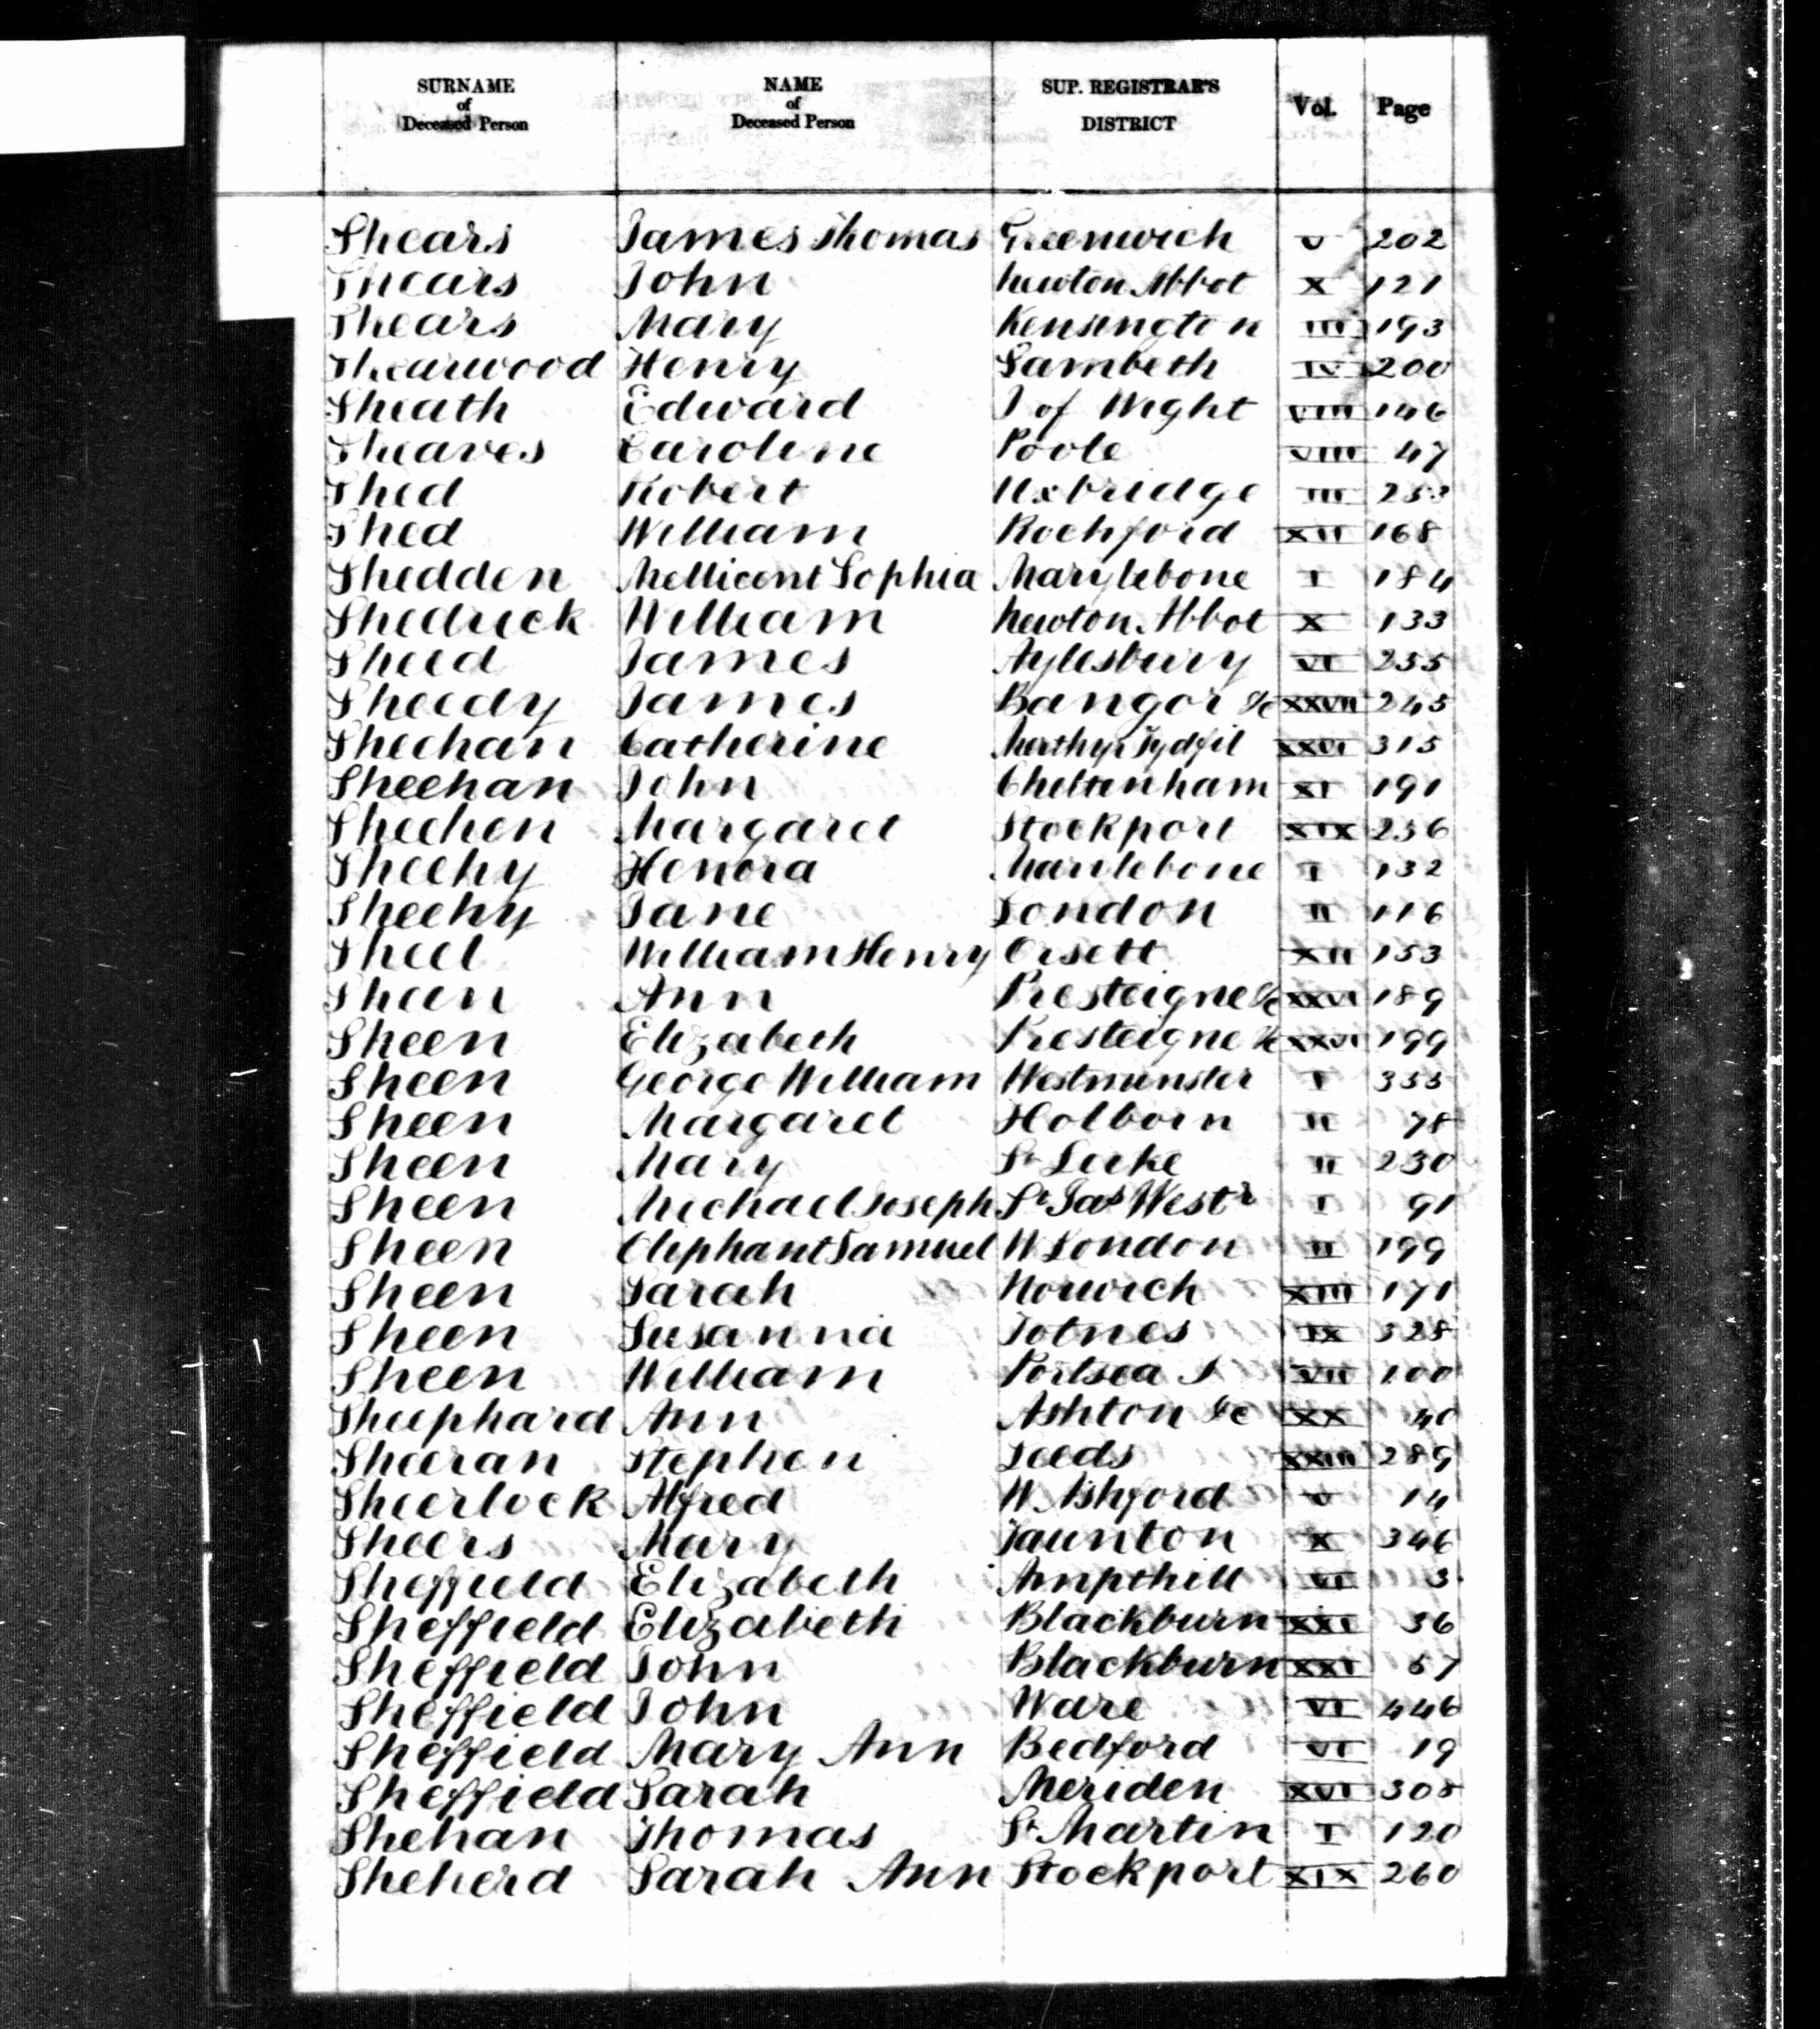 SURNAME of Deceased Person NAME of Deceased Person SUP. REGISTRAR'S DISTRICT Vol. Page
Shears James Thomas Greenwich V 202
Shears John Newton Abbot X 121
Shears Mary Kensington III 193
Shearwood Henry Lambeth IV 200
Sheath Edward I of Wight VIII 146
Sheaves Caroline Poole VIII 47
Shed Robert Uxbridge III
Shed William Rochford XII 168
Shedden Mellicent Sophia Marylebone I 184
Shedrick William Newton Abbot X 133
Sheed James Aylesbury VI 255
Sheedy James Bangor &c XXVII 245
Sheehan Catherine Merthyr Tydfil XXVI 315
Sheehan John Cheltenham XI 191
Sheehen Margaret Stockport XIX 256
Sheehy Honora Marylebone I 132
Sheehy Jane London II 116
Sheel William Henry Orsett XII 153
Sheen Ann Presteigne &c XXVI 189
Sheen Elizabeth Presteigne &c XXVI 199
Sheen George William Westminster I 355
Sheen Margaret Holborn II 78
Sheen Mary St Luke II 230
Sheen Michael Joseph St Jas West r I 91
Sheen Oliphant Samuel W London II 199
Sheen Sarah Norwich XIII 171
Sheen Susanna Totnes IX 328
Sheen William Portsea I VII 100
Sheephard Ann Ashton &c XX 40
Sheeran Stephen Leeds XXIII 289
Sheerlock Alfred W. Ashford V 14
Sheers Mary Taunton X 346
Sheffield Elizabeth Ampthill VI 3
Sheffield Elizabeth Blackburn XXI 36
Sheffield John Blackburn XXI 57
Sheffield John Ware VI 446
Sheffield Mary Ann Bedford VI 19
Sheffield Sarah Meriden XVI 308
Shehan Thomas St Martin I 120
Sheherd Sarah Ann Stockport XIX 260